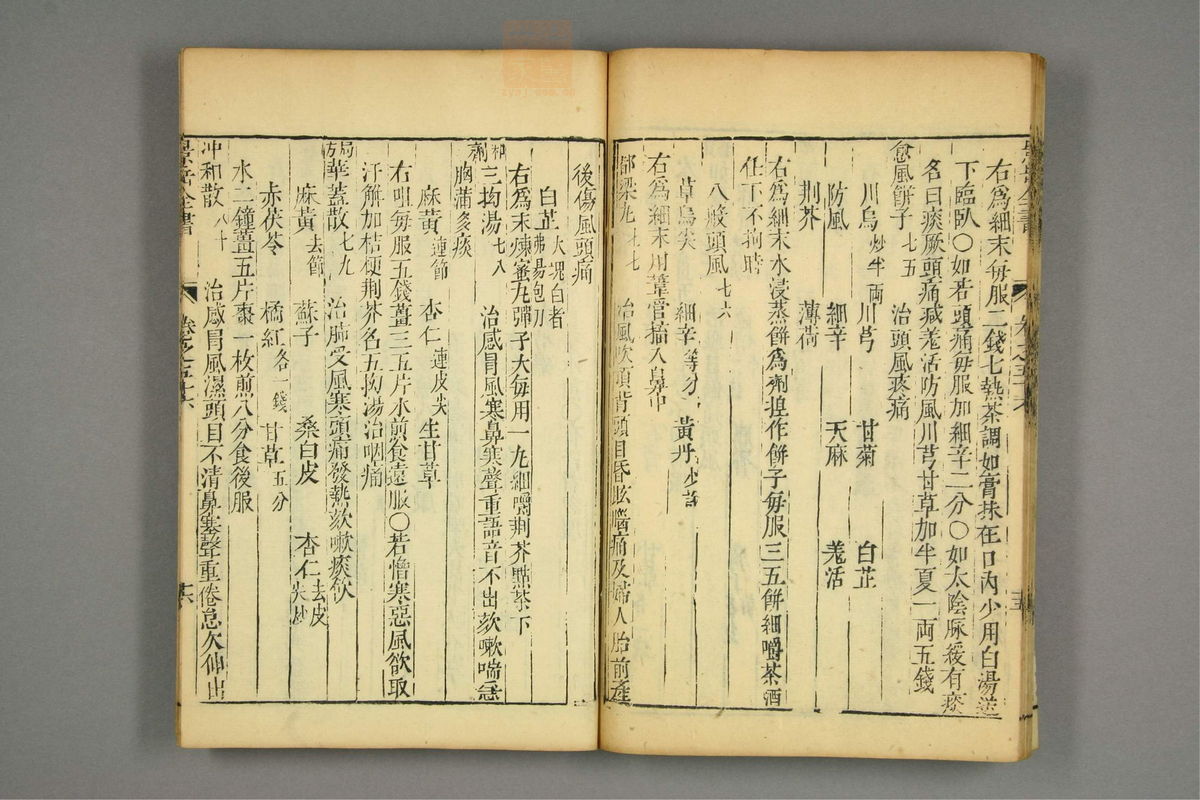 右為細末每服二錢七熱茶調如膏抹在口內少用白湯送
下臨臥○如苦頭痛每服加細辛二分○如太陰脉緩有痰
名曰痰厥頭痛減羌活防風川芎甘草加半夏一両五錢
愈風餅子七五 治頭風疼痛
川烏炒半両 川芎 甘菊 白芷
防風 細辛 天麻 羌活
荆芥 薄荷
右為細末水浸蒸餅為劑揑作餅子每服三五餅細嚼茶酒
任下不拘時
八般頭風七六
草烏尖 細辛等分 黃丹少許
右為細末用葦管搐入鼻中
都梁丸七七 治風吹項背頭目昏眩腦痛及婦人胎前產
後傷風頭痛
白芷大塊白者沸湯泡
右為末煉蜜丸彈子大每用一丸細嚼荆芥㸃茶下
和劑三拗湯七八 治感冒風寒鼻塞聲重語音不出欬嗽喘急
胸滿多痰
麻黃連節 杏仁連皮尖 生甘草
右咀每服五錢薑三五片水煎食遠服○若憎寒惡風欲取
汗解加桔梗荆芥名五拗湯治咽痛
局方華蓋散七九 治肺受風寒頭痛發熱欬嗽痰飲
麻黃去節 蘇子 桑白皮 杏仁去皮尖炒
赤茯苓 橘紅各一錢 甘草五分
水二鐘薑五片棗一枚煎八分食後服
冲和散八十 治感冒風濕頭目不清鼻塞聲重倦怠欠伸出
景岳全書 卷之五十六 十六